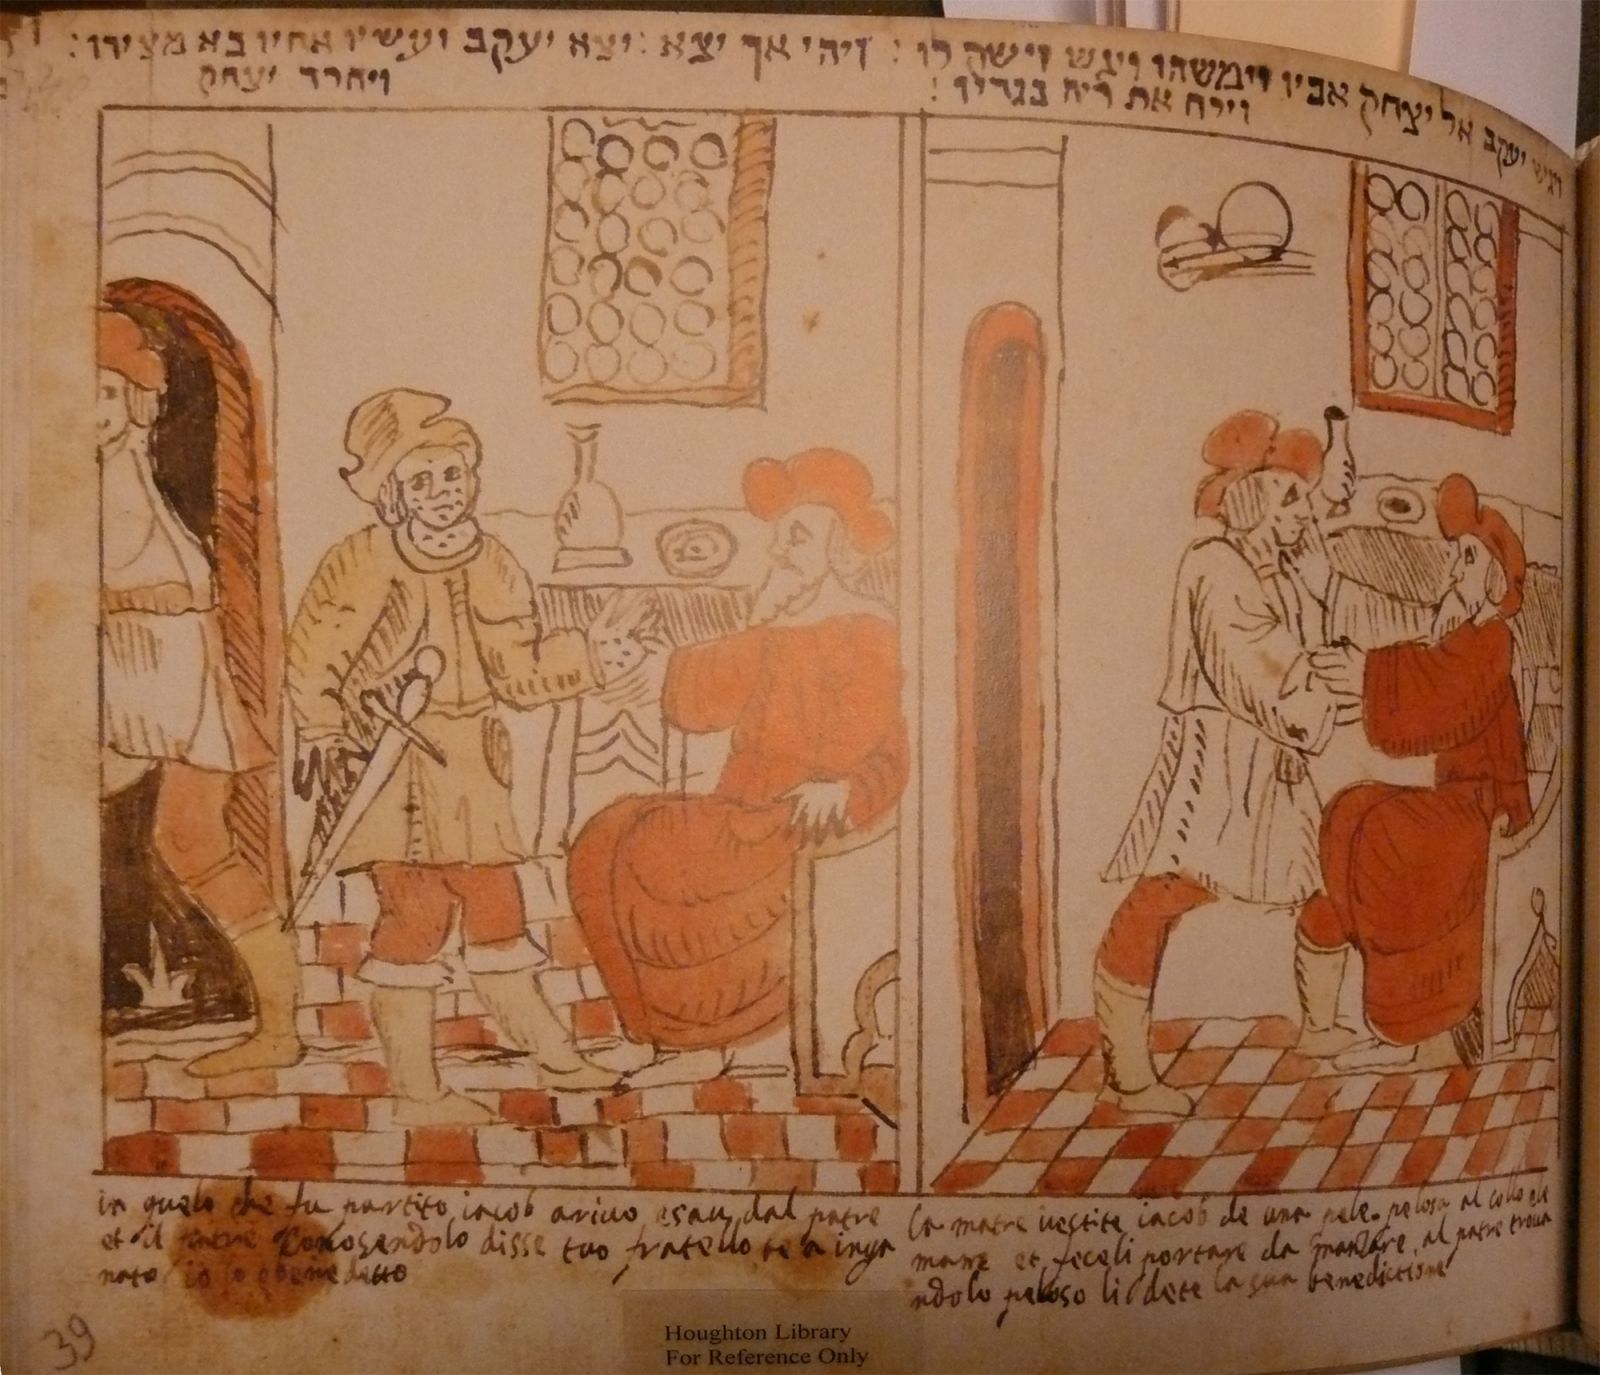 ויגש יעקב אל יצחק אביו וימשהו ויגש וישק לו :
וירח את ריח בגדיו :
ויהי אך יצא : יצא יעקב ועשיו אחיו בא מצידו :
ויחרד יצחק
in quelo che fu partito iacob arivo esau dal patre
et il patre Conosendolo disse tuo fratello te a inga
nato io lo o benedetto
la matre vestite iacob de una pele pelosa al collo ele
mane et feceli portare da manzare al patre trova
ndolo peloso li dete la sua benedictione
39
Houghton Library
For Reference Only